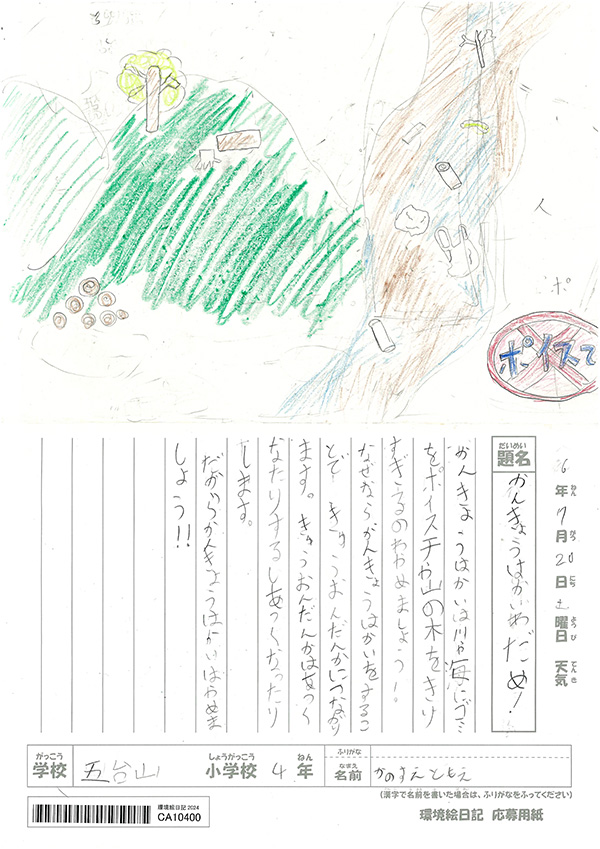 ポイスて
6年7月20日土曜日 天気
ねん がつ にち ようび てんき
だいめい
題名
かんきょうはかいわだめ!
かんきょうはかいは川や海にゴミ
をポイスチや山の木をきり
すぎるのわやめましょう!。
なぜならかんきょうはかいをするこ
とで、きゅうおんだんかにつながり
ます。きゅうおんだんかはあつく
なたりするしあっくなったり
します。
だからかんきょうはかいはやめま
しょう!!
がっこう
学校
五台山
しょうがっこう
小学校
4
ねん
年
ふりがな
なまえ
名前
かのすえともえ
(漢字で名前を書いた場合は、ふりがなをふってください)
環境絵日記2024
CA10400
環境絵日記 応募用紙